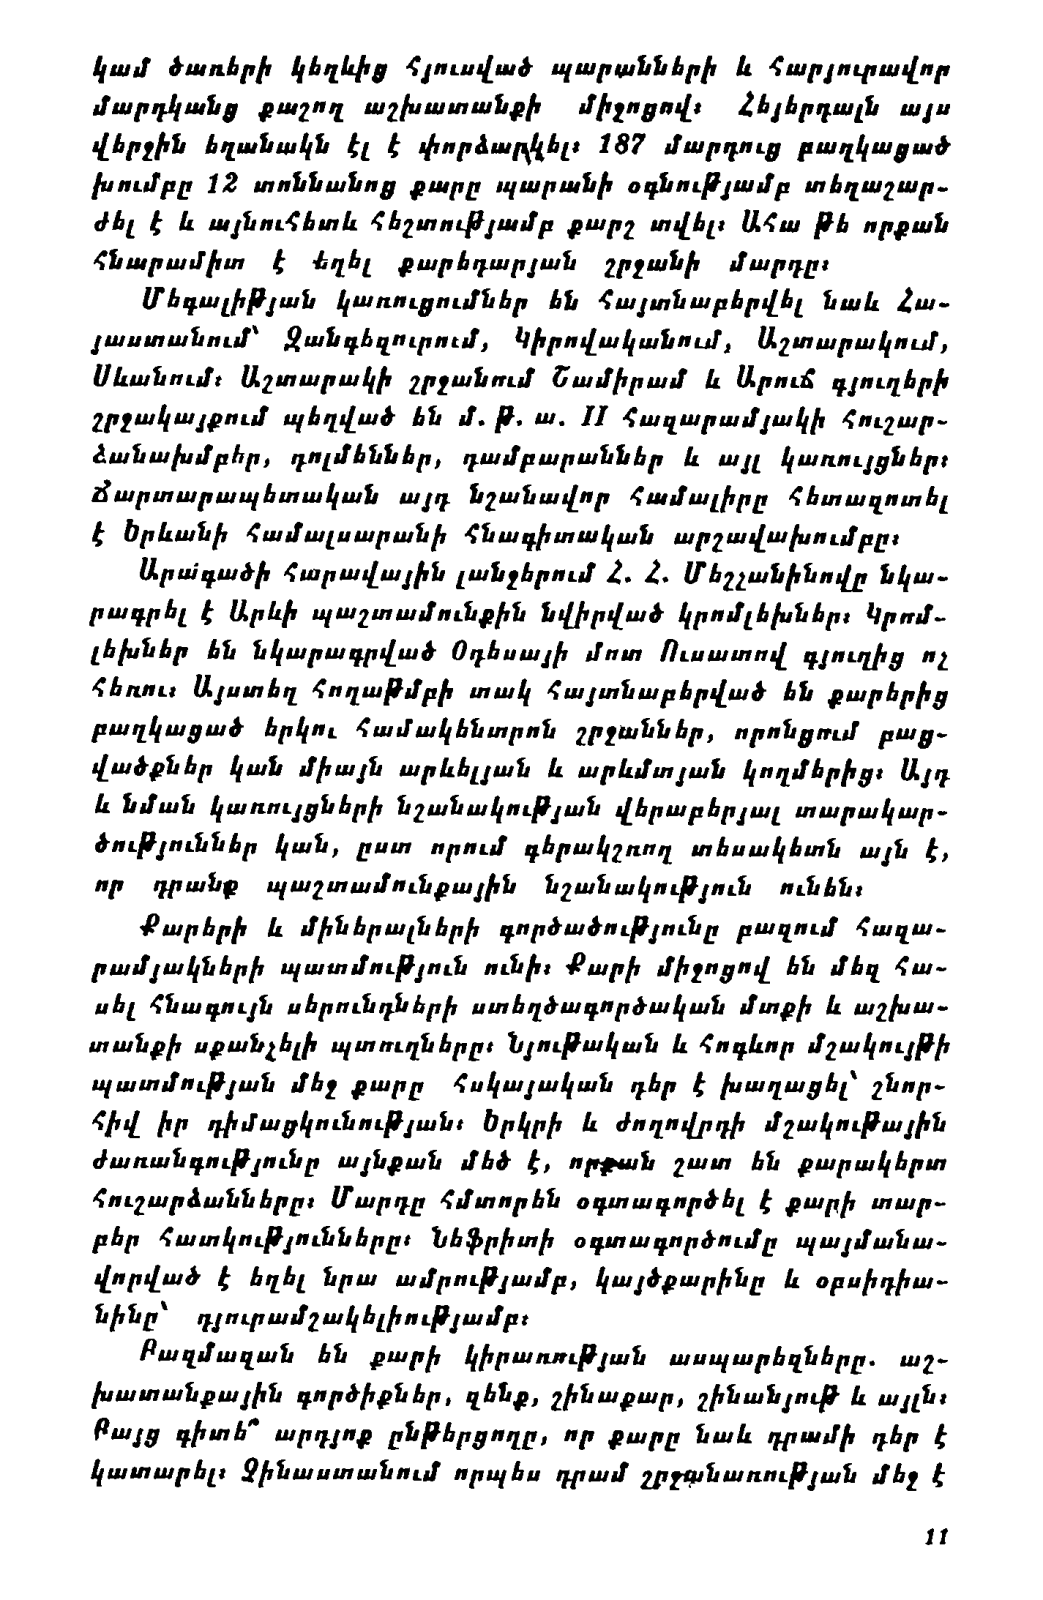 կամ ծառերի կեղևից հյուսված պարանների և հարյուրավոր
մարդկանց քաշող աշխատանքի միջոցով։ Հեյերդալն այս
վերջին եղանակն էլ է փորձարկել։ 187 մարդուց բաղկացած
խումբը 12 տոննանոց քարը պարանի օգնությամբ տեղաշար-
ժել է և այնուհետև հեշտությամբ քարշ տվել։ Ահա թե որքան
հնարամիտ է եղել քարեդարյան շրջանի մարդը։
Մեգալիթյան կառուցումներ են հայտնաբերվել նաև Հա-
յաստանում՝ Զանգեզուրում, Կիրովականում, Աշտարակում,
Սևանում։ Աշտարակի շրջանում Շամիրամ և Արուճ գյուղերի
շրջակայքում պեղված են մ. թ. ա. II հազարամյակի հուշար-
ձանախմբեր, դոլմեններ, դամբարաններ և այլ կառույցներ։
Ճարտարապետական այդ նշանավոր համալիրը հետազոտել
է Երևանի համալսարանի հնագիտական արշավախումբը։
Արագածի հարավային լանջերում Հ. Հ. Մեշչանինովը նկա-
րագրել է Արևի պաշտամունքին նվիրված կրոմլեխներ։ Կրոմ-
լեխներ են նկարագրված Օդեսայի մոտ Ուսատով գյուղից ոչ
հեռու։ Այստեղ հողաթմբի տակ հայտնաբերված են քարերից
բաղկացած երկու համակենտրոն շրջաններ, որոնցում բաց-
վածքներ կան միայն արևելյան և արևմտյան կողմերից։ Այդ
և նման կառույցների նշանակության վերաբերյալ տարակար-
ծություններ կան, ըստ որում գերակշռող տեսակետն այն է,
որ դրանք պաշտամունքային նշանակություն ունեն։
Քարերի և միներալների գործածությունը բազում հազա-
րամյակների պատմություն ունի։ Քարի միջոցով են մեզ հա-
սել հնագույն սերունդների ստեղծագործական մտքի և աշխա-
տանքի սքանչելի պտուղները։ Նյութական և հոգևոր մշակույթի
պատմության մեջ քարը հսկայական դեր է խաղացել՝ շնոր-
հիվ իր դիմացկունության։ Երկրի և ժողովրդի մշակութային
ժառանգությունը այնքան մեծ է, որքան շատ են քարակերտ
հուշարձանները։ Մարդը հմտորեն օգտագործել է քարի տար-
բեր հատկությունները։ Նեֆրիտի օգտագործումը պայմանա-
վորված է եղել նրա ամրությամբ, կայծքարինը և օբսիդիա-
նինը՝ դյուրամշակելիությամբ։
Բազմազան են քարի կիրառության ասպարեզները. աշ-
խատանքային գործիքներ, զենք, շինաքար, շինանյութ և այլն։
Բայց գիտե՞ արդյոք ընթերցողը, որ քարը նաև դրամի դեր է
կատարել։ Չինաստանում որպես դրամ շրջանառության մեջ է
11